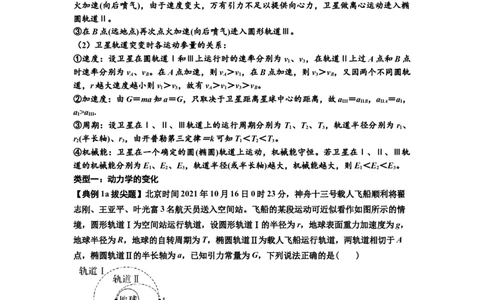 火加速(向后喷气)，由于速度变大，万有引力不足以提供向心力，卫星做离心运动进入椭
圆轨道Ⅱ。
③在B点(远地点)再次点火加速(向后喷气)进入圆形轨道Ⅲ。
（2）卫星轨道突变时各运动参量的关系：
①速度：设卫星在圆轨道Ⅰ和Ⅲ上运行时的速率分别为v₁、v₃，在轨道Ⅱ上过A点和B点
时速率分别为vA、vB。在A点加速，则vA>v₁，在B点加速，则v₃>vB，又因两个不同圆轨
道，r越大速度越小则v₁>v₃，故有vA>v₁>v₃>vB。
②加速度：由G=ma知a=G，只取决于卫星距离星球中心的距离，故aⅢ=aⅡB，aⅡA=aⅠ，
aⅠ>aⅢ.
③周期：设卫星在Ⅰ、Ⅱ、Ⅲ轨道上的运行周期分别为T₁、T₂、T₃，轨道半径分别为r₁、
r₂(半长轴)、r₃，由开普勒第三定律=k可知T₁<T₂<T₃。
④机械能：卫星在一个确定的圆(椭圆)轨道上运动，机械能守恒。若卫星在Ⅰ、Ⅱ、Ⅲ轨
道的机械能分别为E₁、E₂、E₃，轨道半径(或半长轴)越大，机械能越大，则E₁<E₂<E₃。
类型一：动力学的变化
【典例1a拔尖题】北京时间2021年10月16日0时23分，神舟十三号载人飞船顺利将翟
志刚、王亚平、叶光富3名航天员送入空间站。飞船的某段运动可近似看作如图所示的情
境，圆形轨道Ⅰ为空间站运行轨道，设圆形轨道Ⅰ的半径为r，地球表面重力加速度为g，
地球半径为R，地球的自转周期为T，椭圆轨道Ⅱ为载人飞船运行轨道，两轨道相切于A
点，椭圆轨道Ⅱ的半长轴为a，已知引力常量为G，下列说法正确的是( )
轨道Ⅰ
轨道Ⅱ
地球